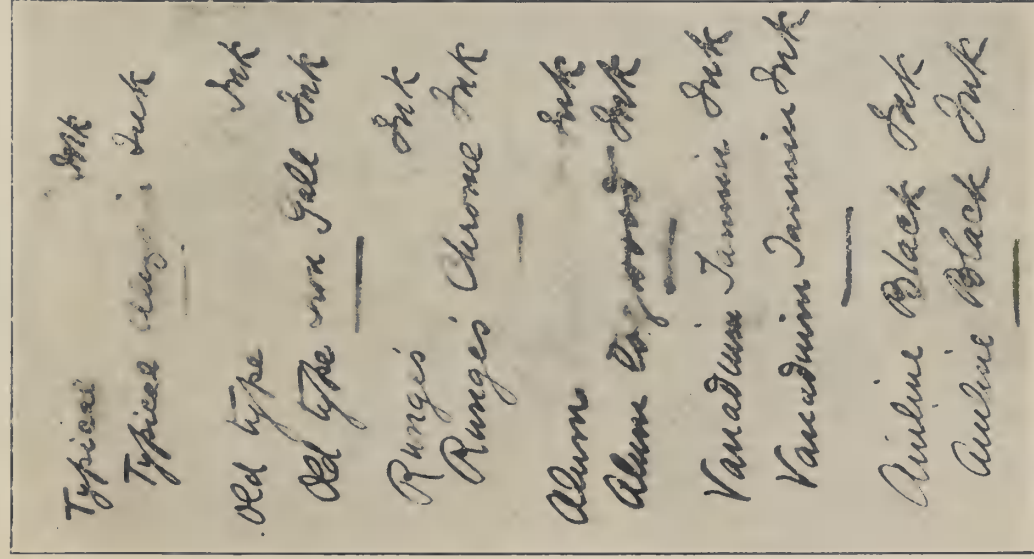 Typical Ink
Typical Ink
Old type Ink
Old type iron Gall Ink
Runge's Ink
Runge's Chrome Ink
Alum Ink
Alum Logwood Ink
Vanadium Tannin Ink
Vanadium Tannin Ink
Aniline Black Ink
Aniline Black Ink